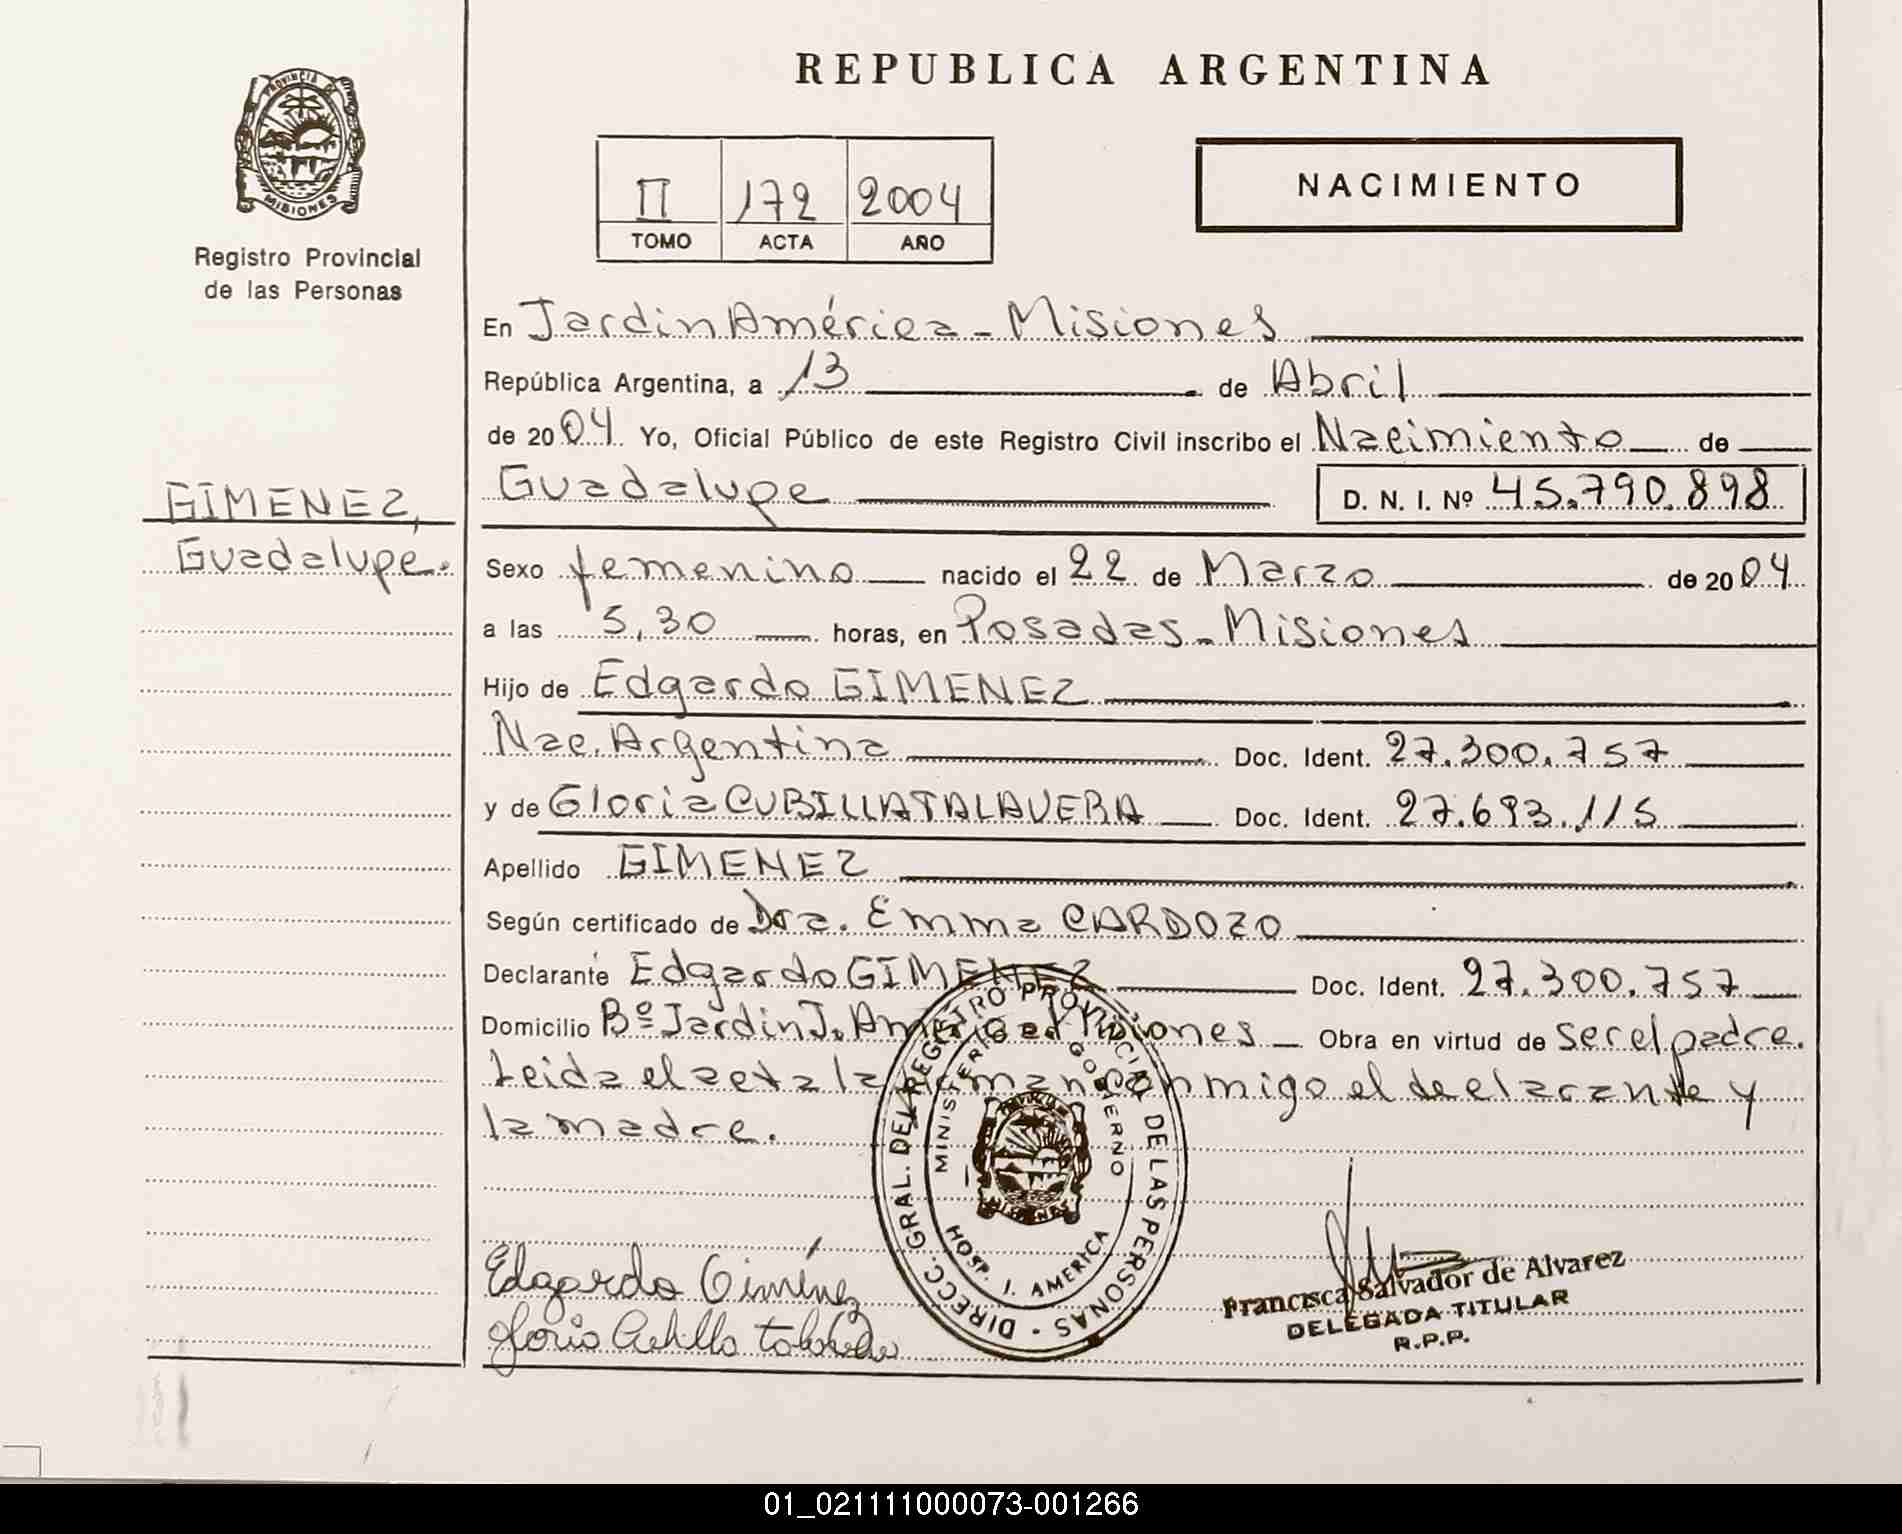 REPUBLICA ARGENTINA
PROVINCIA DE
MISIONES
Registro Provincial
de las Personas
II 172 2004
TOMO ACTA AÑO
NACIMIENTO
En Jardin América - Misiones
República Argentina, a 13 de Abril
de 2004 Yo, Oficial Público de este Registro Civil inscribo el Nacimiento de
Guadalupe D. N. I. Nº 45.790.898
GIMENEZ,
Guadalupe.
Sexo femenino nacido el 22 de Marzo de 2004
a las 5,30 horas, en Posadas - Misiones
Hijo de Edgardo GIMENEZ
Nac. Argentina Doc. Ident. 27.300.757
y de Gloria CUBILLA TALAVERA Doc. Ident. 27.693.115
Apellido GIMENEZ
Según certificado de Dra. Emma CARDOZO
Declarante Edgardo GIMENEZ Doc. Ident. 27.300.757
Domicilio Bº Jardin J. América Misiones Obra en virtud de ser el padre.
Leida el acta la firman conmigo el declarante y
la madre.
DIRECC. GRAL. DEL REGISTRO PROVINCIAL DE LAS PERSONAS
MINISTERIO DE GOBIERNO
HOSP. J. AMERICA
Edgardo Giménez
Gloria Cubilla Talavera
Francisca Salvador de Alvarez
DELEGADA TITULAR
R.P.P.
01_021111000073-001266